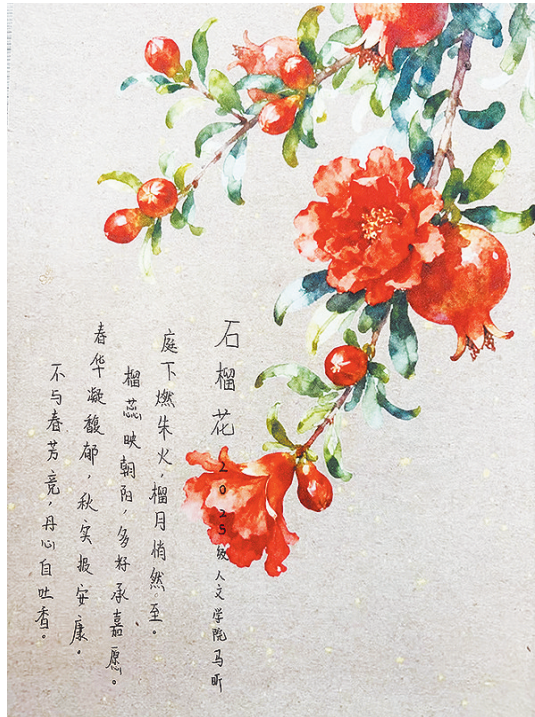 石榴花
2025级人文学院马昕
庭下燃朱火，榴月悄然至。
榴蕊映朝阳，多好承嘉愿。
春华凝馥郁，秋实报安康。
不与春芳竞，丹心自吐香。